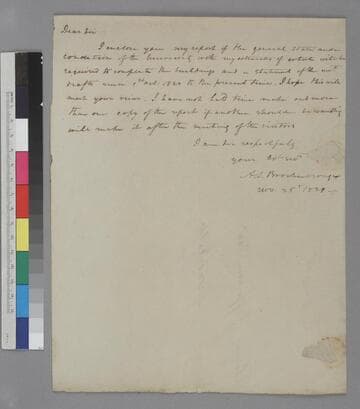 Dear Sir
I enclose you my report of the general state and
condition of the University with my estimate of what will be
required to complete the buildings and a statement of the
drafts since 1st Oct. 1820 to the present time. I hope this will
meet your views. I have not had time make out more
than one copy of the report if another should be wanting
will make it after the meeting of the visitors
I am sir respectfully
your Obt Svt
A. S. Brockenbrough
Nov. 25th